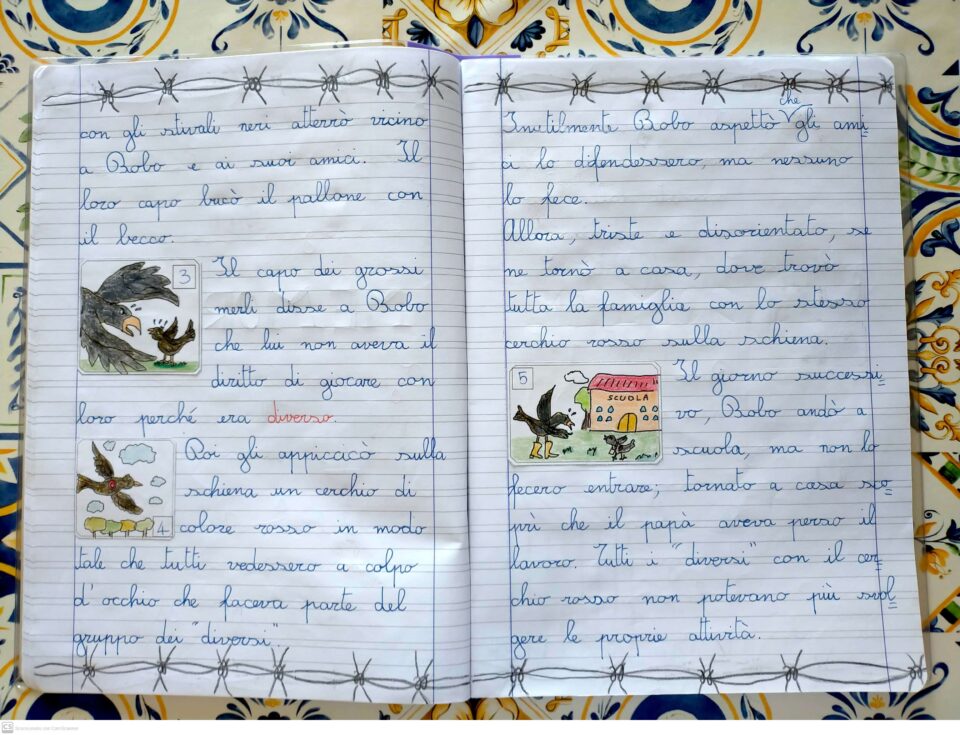 con gli stivali neri atterrò vicino
a Bobo e ai suoi amici. Il
loro capo bucò il pallone con
il becco.
3
Il capo dei grossi
merli disse a Bobo
che lui non aveva il
diritto di giocare con
loro perché era diverso.
4
Poi gli appiccicò sulla
schiena un cerchio di
colore rosso in modo
tale che tutti vedessero a colpo
d'occhio che faceva parte del
gruppo dei "diversi".
Inutilmente Bobo aspettò che gli ami=
ci lo difendessero, ma nessuno
lo fece.
Allora, triste e disorientato, se
ne tornò a casa, dove trovò
tutta la famiglia con lo stesso
cerchio rosso sulla schiena.
5
SCUOLA
Il giorno successi=
vo, Bobo andò a
scuola, ma non lo
fecero entrare; tornato a casa sco=
prì che il papà aveva perso il
lavoro. Tutti i "diversi" con il cer=
chio rosso non potevano più svol=
gere le proprie attività.
CS Scansionato con CamScanner